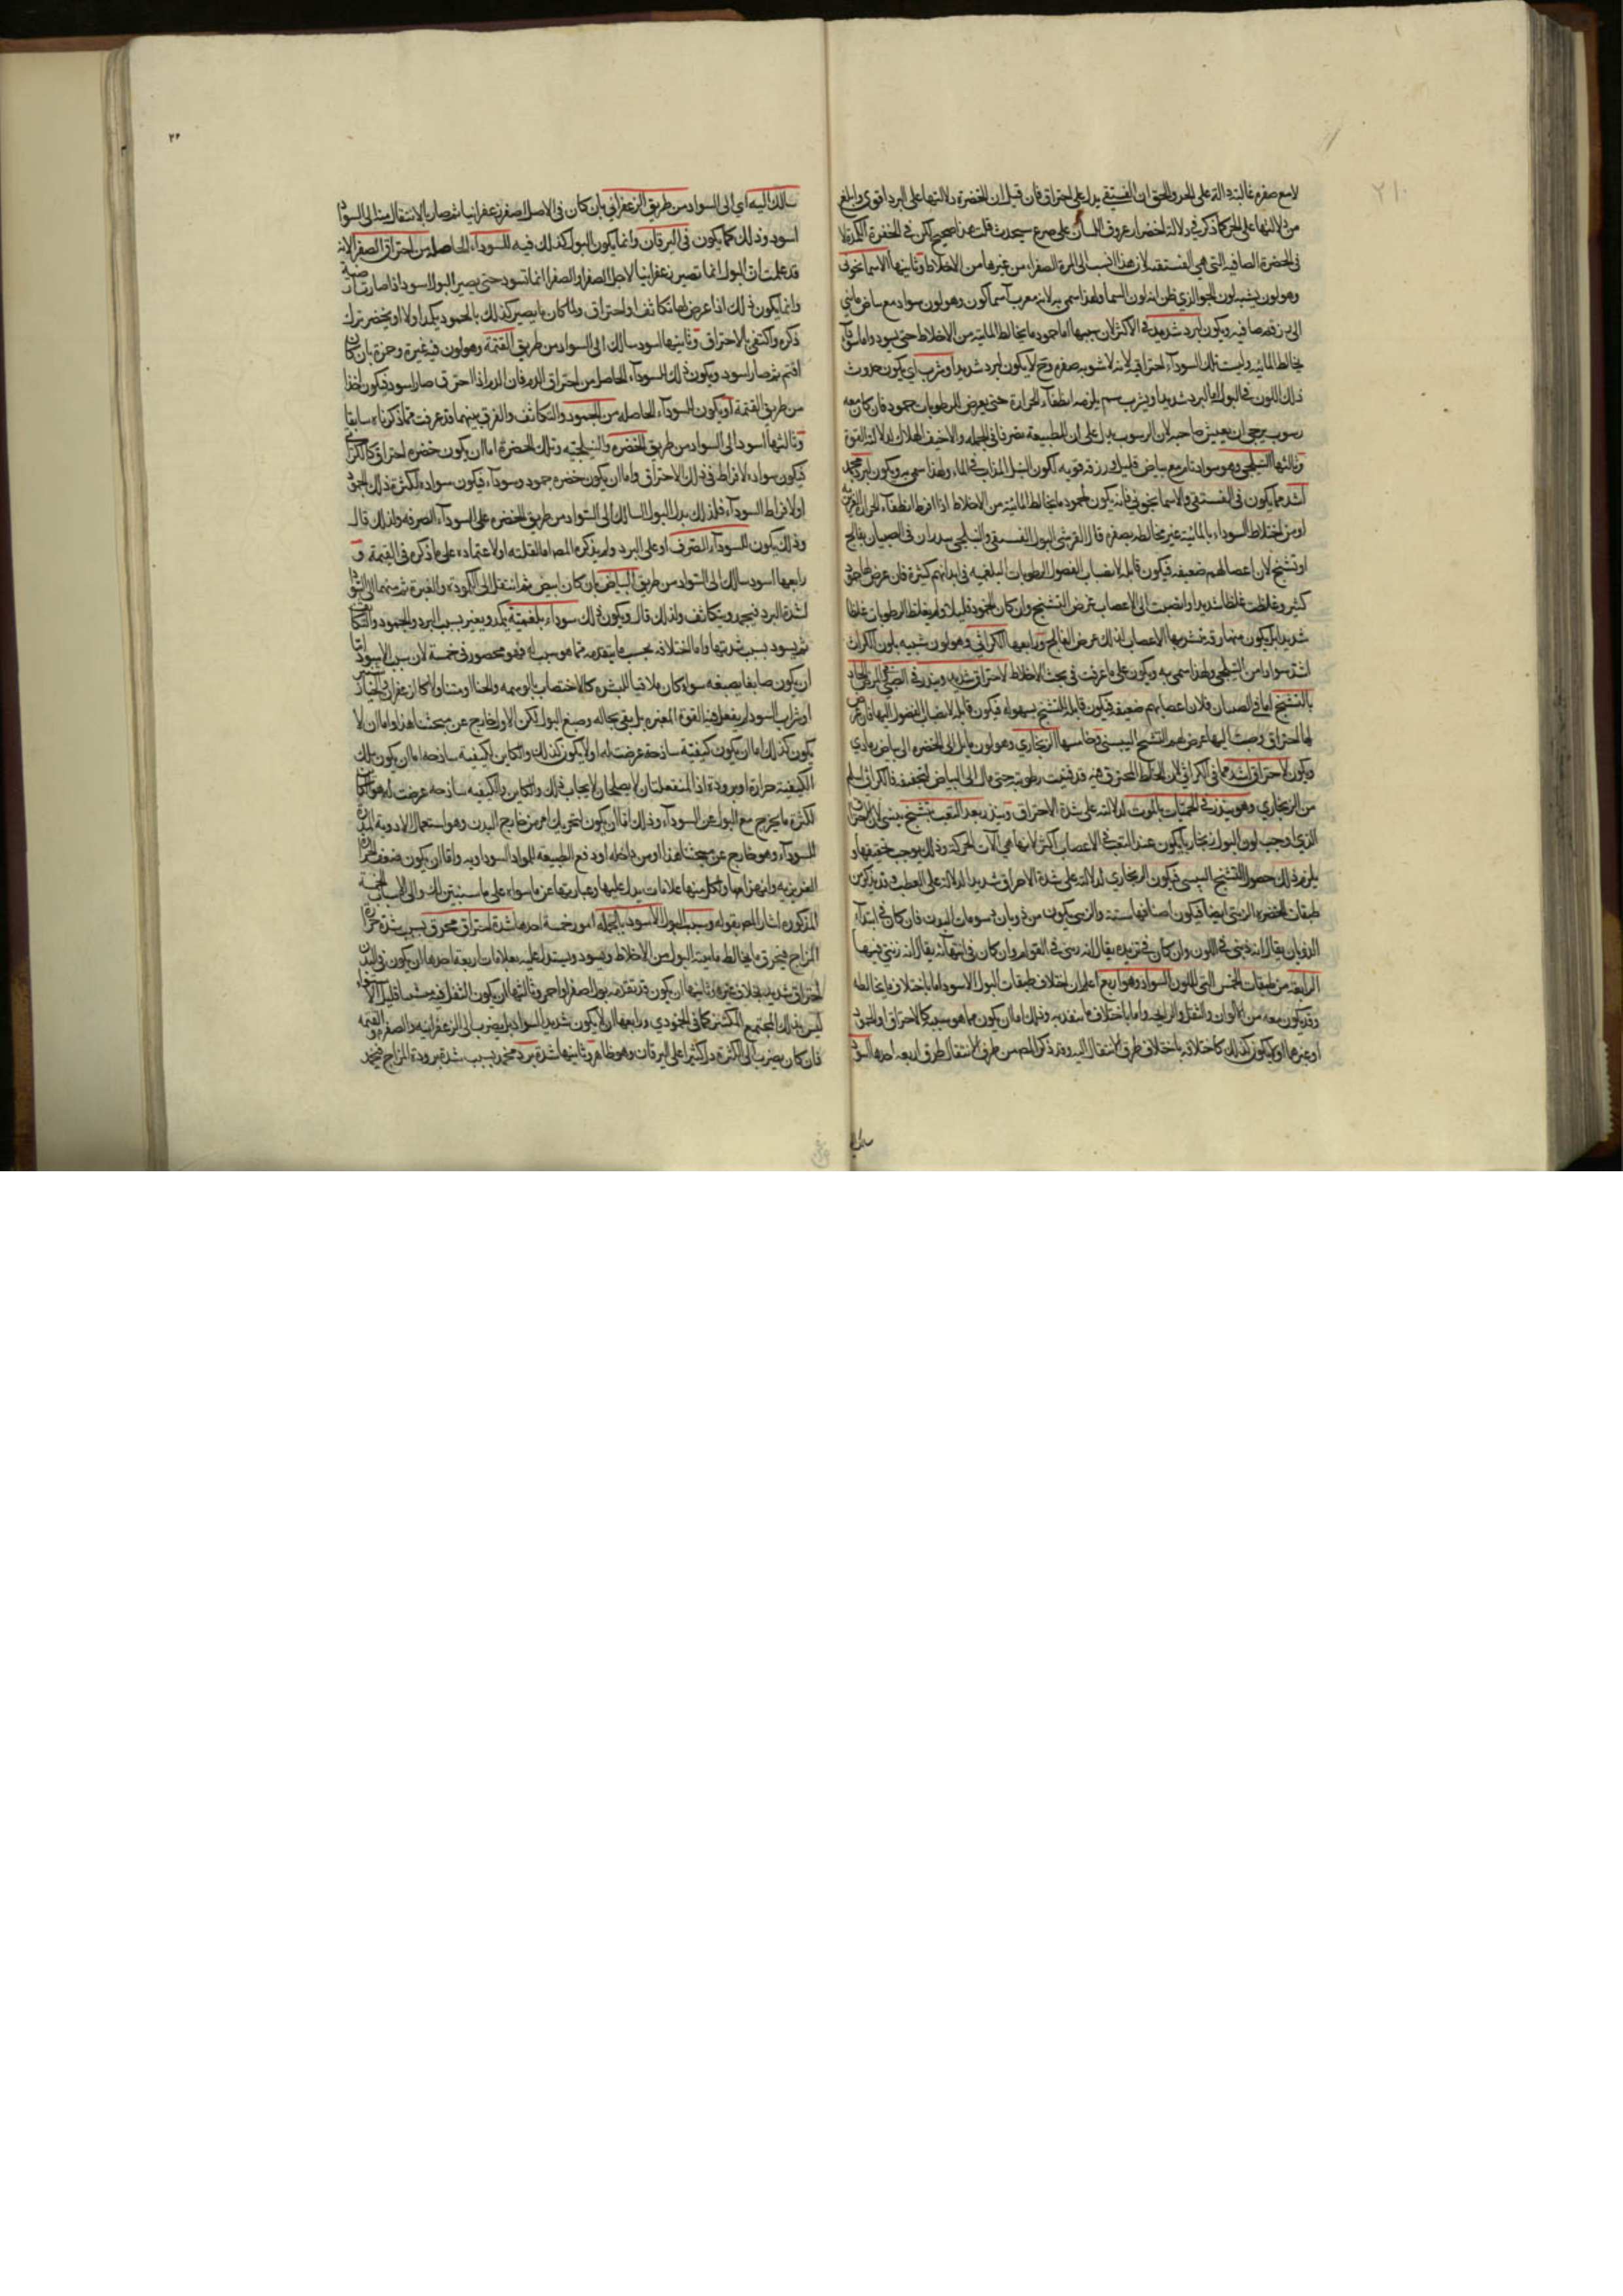 ٢١٠
لامع صفره غالبة دالة على الحر والحق ان الفستقي يدل على احتراق فان قيل ان الخضرة دلالتها على البرد اقوى وابلغ
من دلالتها على الحر كما ذكر في دلالة اخضرار عروق اللسان على صرع سيحدث قلت هذا صحيح لكن في الخضرة الكمدة لا
في الخضرة الصافية التي هي الفستقية لان هذا النسب الى المرة الصفراء من غيرها من الاخلاط وثانيها الاسمانجوني
وهو لون يشبه لون الجو الذي ظن انه لون السما ولهذا سمي به لانه معرب آسماكون وهو لون سواد مع بياض مايل
الى زرقة صافية ويكون لبرد شديد في الاكثر لان سببها اما جمود ما يخالط المائية من الاخلاط حتى يسود واما سودا
يخالط المائية وليست تلك السوداء احتراقية لانه لا شوبه صفرة وح لا يكون لبرد شديد او شرب اي يكون حدوث
ذلك اللون في البول اما لبرد شديد او شرب سم يلزمه انطفاء الحرارة حتى يعرض للرطوبات جمود فان كان معه
رسوب يرجى ان يعيش صاحبه لان الرسوب يدل على ان للطبيعة تصرفا في الجملة والا خيف الهلاك لدلالة القوة
وثالثها النيلجي وهو سواد تام مع بياض قليل وزرقة قوية كلون النيل المذاب في الماء ولهذا سمي به ويكون لبرد مجمد
اشد مما يكون في الفستقي والاسمانجوني فانه يكون لجمود ما يخالط المائية من الاخلاط اذا افرط انطفاء الحرارة الغريزية
او من اختلاط السوداء بالمائية غير مخالطه بصفرة قال القرشي البول الفستقي والنيلجي ينذران في الصبيان بفالج
او تشنج لان اعصابهم ضعيفة فيكون قابلة لانصباب الفضول الرطوبات البلغمية في ابدانهم كثيرة فان عرض لها جمود
كثير وغلظت غلظا شديدا وانصبت الى الاعصاب عرض التشنج وان كان الجمود قليلا ولم يغلظ الرطوبات غلظا
شديدا بل يكون منها رقة فتشربها الاعصاب لذلك عرض الفالج ورابعها الكراثي وهو لون شبيه بلون الكراث
اشد سوادا من النيلجي ولهذا سمي به ويكون على ما عرفت في بحث الاخلاط لاحتراق شديد وينذر في الصبي المرض الحاد
بالتشنج اما في الصبيان فلان اعصابهم ضعيفة فيكون قابلة للتشنج بسهولة فيكون قابلة لانصباب الفضول اليها فان عرض
لها احتراق وصبت اليها عرض لهم التشنج اليبسي وخامسها الزنجاري وهو لون مايل الى الخضرة الى بياض رمادي
ويكون لاحتراق اشد مما في الكراثي لان الخلط المحترق فيه قد فنيت رطوبته حتى مال الى البياض لتجففه فالكراثي اسلم
من الزنجاري وهو ينذر في الحميات بالموت لدلالته على شدة الاحتراق وينذر بعد التعب بتشنج يبسي لان الاحتراق
الذي اوجب لون البول زنجاريا يكون عند التعب في الاعصاب اكثر لانها هي الات الحركة وذلك يوجب تجفيفها و
يلزم ذلك حصول التشنج اليبسي فيكون الزنجاري لدلالته على شدة الاحراق شديد الدلالة على العطب وقد يذكر من
طبقات الخضرة الزيتي ايضا فيكون اصنافها ستة والزيتي يكون من ذوبان دسومات البدن فان كان في ابتداء
الذوبان يقال انه زيتي في اللون وان كان في تزيده يقال انه زيتي في القوام وان كان في انتهائه يقال انه زيتي فيهما
الرابعة من طبقات الجنس التي للون السواد وهو اربع اعلم ان اختلاف طبقات البول الاسود اما باختلاف ما يخالطه
وقد يكون معه من الالوان والثفل والرايحة واما باختلاف ما سنذر به وذلك اما ان يكون مما هو سببه كالاحتراق او الجمود
او غيرهما او لا يكون كذلك كاختلافه باختلاف طرق الانتقال اليه وقد ذكر المصـ من طرق الانتقال طرق اربعة احدها اسود
سالك
٢٢
سالك اليه اي الى السواد من طريق الزعفراني بان كان في الاصل اصفر زعفرانيا ثم صار بالانتقال منه الى السواد
اسود وذلك كما يكون في اليرقان وانما يكون البول كذلك فيه للسوداء الحاصلة من احتراق الصفرا لانه
قد علمت ان البول انما تصير زعفرانيا لاجل الصفرا والصفرا انما تسود حتى يصير البول اسود اذا صارت
وانما يكون ذلك اذا عرض لها تكاثف او احتراق ولما كان ما يصير كذلك بالجمود يكمد اولا او يخضر ترك
ذكره واكتفى بالاحتراق وثانيها اسود سالك الى السواد من طريق القتمة وهو لون فيه غبرة وحمرة بان كان
اقتم ثم صار اسود ويكون ذلك للسوداء الحاصل من احتراق الدم فان الدم اذا احترق صار اسود فيكون اخذا
من طريق القتمة او يكون للسوداء الحاصلة من الجمود والتكاثف والفرق بينهما قد عرفت مما ذكرناه سابقا
وثالثها اسود الى السواد من طريق الخضرة والنيلجية وتلك الخضرة اما ان يكون خضرة احتراق كالكراثي
فيكون سواده لافراط في ذلك الاحتراق واما ان يكون خضرة جمود وسوداء فيكون سواده لكثرة ذلك الجمود
او لافراط السوداء فلذلك يدل البول السالك الى السواد من طريق الخضرة على السوداء الصرفة ولذلك قال
وذلك يكون للسوداء الصرف او على البرد ولم يذكره المصـ اما لقلته او لاعتماده على ما ذكره في القتمة و
رابعها اسود سالك الى السواد من طريق البياض بان كان ابيض ثم انتقل الى الكمودة والغبرة ثم منهما الى السواد
لشدة البرد فيجمد ويتكاثف ولذلك قال ويكون ذلك سوداء بلغمية يكمد ويغبر بسبب البرد والجمود والتكاثف
ثم يسود بسبب شدتها واما اختلافه بحسب ما يتقدمه مما هو سبب له فهو محصور في خمسة لان سبب الاسود اما
ان يكون صابغا يصبغه سواء كان ملاقيا للبشرة كالاختضاب بالوسمة والحنا او متناولا كالزعفران والخيارشنبر
او شراب اسود لم يفعل فيه القوة المغيرة بل بقي بحاله وصبغ البول لكن الاول خارج عن مبحثنا هذا واما ان لا
يكون كذلك اما ان يكون كيفية ساذجة عرضت له او لا يكون كذلك والكاين لكيفية ساذجة اما ان يكون تلك
الكيفية حرارة او برودة اذ المنفعلتان لا يصلحان لايجاب ذلك والكاين لا لكيفية ساذجة عرضت له هو الكاين
لكثرة ما يخرج مع البول من السوداء وذلك اما ان يكون لتحريك امر من خارج البدن وهو استعمال الادوية المدرة
للسوداء وهو خارج عن مبحثنا هذا او من داخله او دفع الطبيعة للمواد السوداوية واما ان يكون ضعف الحرارة
الغريزية وانهزامها ولكل منها علامات يدل عليها وعبارتها عن ما سواه على ما سنبين لك والى الاسباب الخمسة
المذكورة اشار المصـ بقوله وسبب البول الاسود بالجملة امور خمسة احدها شدة احتراق محرق بسبب شدة حرارة
المزاج فيحرق ما يخالط مايية البول من الاخلاط ويسود ويستدل عليه بعلامات اربعة احدها ان يكون في البدن
احتراق شديد بخلاف غيره وثانيها ان يكون قد تقدمه بول اصفر او احمر وثالثها ان يكون الثفل فيه متشتتا قليل الاستواء
ليس بذلك المجتمع المكتنز كما في الجمودي ورابعها ان لا يكون شديد السواد بل يضرب الى الزعفرانية والصفرة والقتمة
فان كان يضرب الى الكثرة دل كثيرا على اليرقان وهو ظاهر وثانيها شدة برد مجمد بسبب شدة برودة المزاج فيجمد